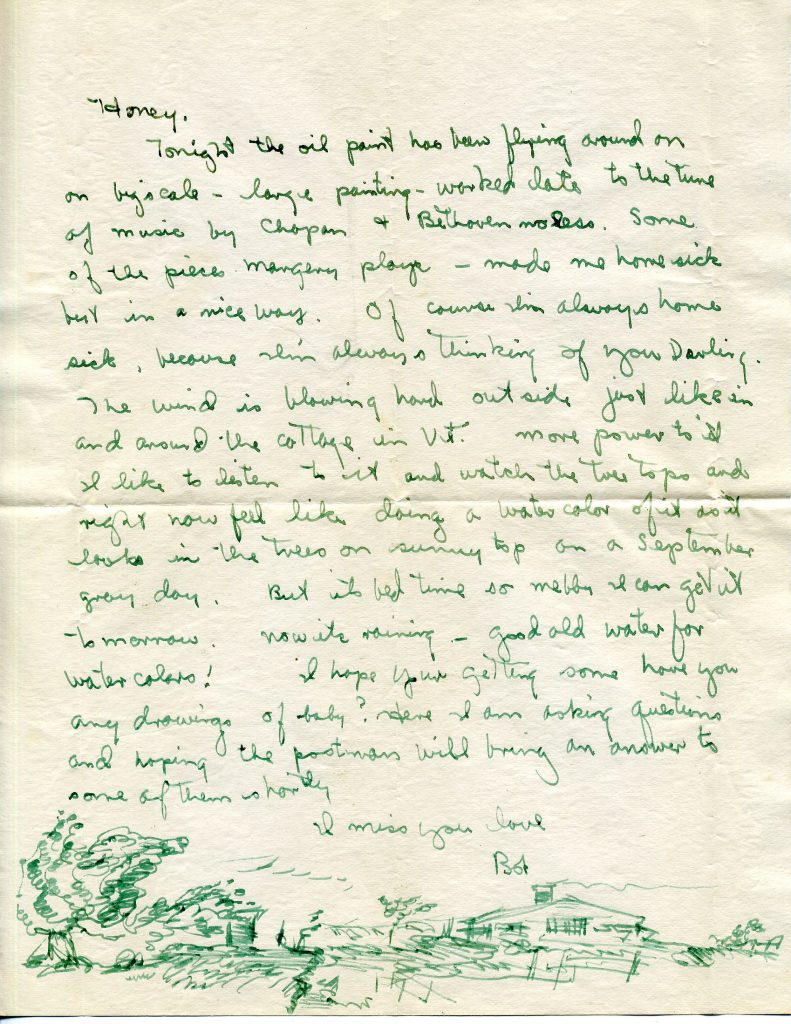 Honey.
Tonight the oil paint has been flying around on
on big scale – large painting – worked late to the tune
of music by Chopan & Bethoven no less. Some
of the pieces Margery plays – made me homesick
but in a nice way. Of course I'm always home
sick, because I'm always thinking of you Darling.
The wind is blowing hard outside just like in
and around the cottage in Vt. more power to it
I like to listen to it and watch the tree tops and
right now feel like doing a water color of it as it
looks in the trees on sunny top on a September
gray day. But its bed time so mebby I can get it
tomorrow. now its raining – good old water for
water colors! I hope your getting some have you
any drawings of baby? Here I am asking questions
and hoping the postman will bring an answer to
some of them shortly
I miss you love
Bob